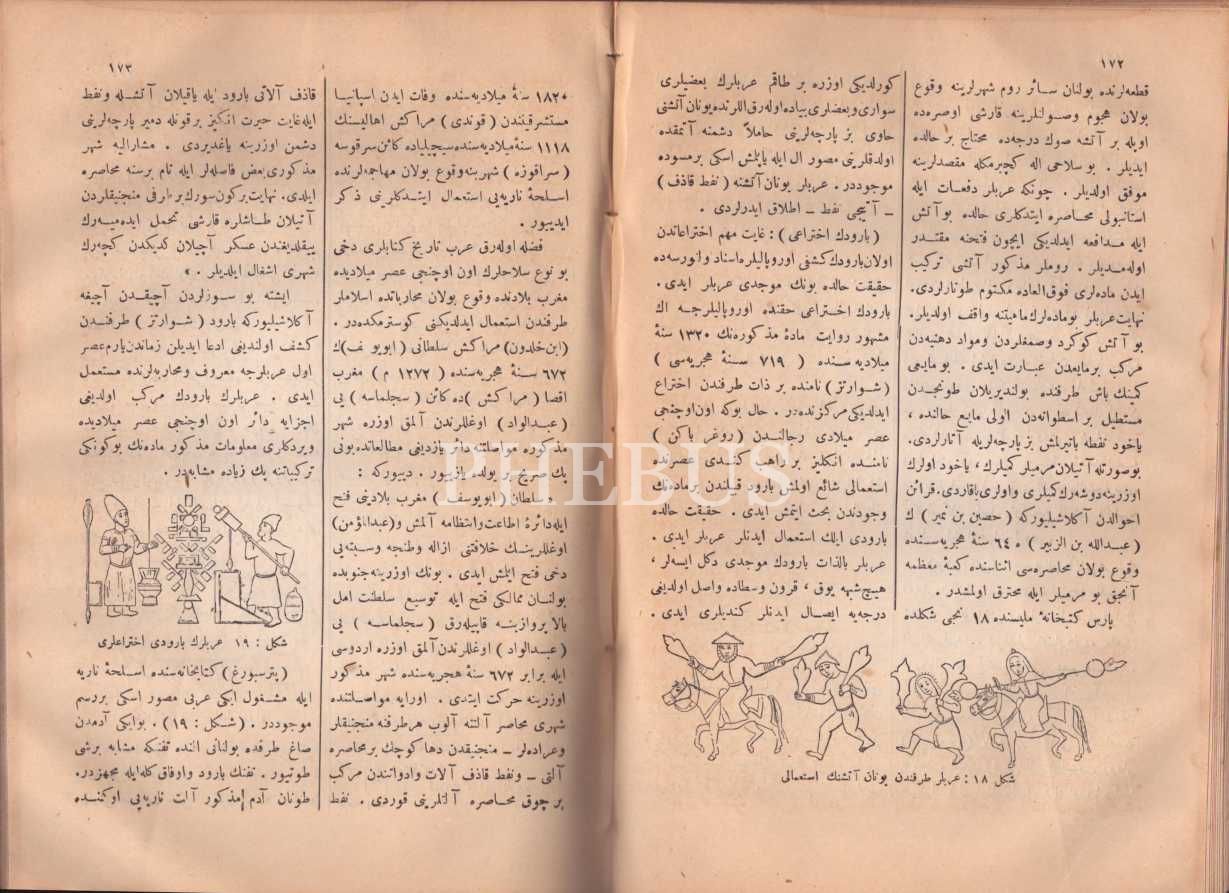 ١٧٢
قطعه‌لرنده بولنان سائر روم شهرلرينه وقوع
بولان هجوم وصولتلرينه قارشى اوصره‌ده
اويله بر آتشه صوك درجه‌ده محتاج بر حالده
ايديلر . بو سلاحى اله كچيرمكله مقصدلرينه
موفق اولديلر . چونكه عربلر دفعات ايله
استانبولى محاصره ايتدكلرى حالده بو آتش
ايله مدافعه ايدلديكى ايچون فتحنه مقتدر
اوله‌مديلر . روملر مذكور آتشى تركيب
ايدن ماده‌لرى فوق العاده مكتوم طوتارلردى.
نهايت عربلر بوماده‌لرك ماهيتنه واقف اولديلر.
بو آتش كوكرد وصمغلردن ومواد دهنيه‌دن
مركب برمايعدن عبارت ايدى . بو مايعى
كمينك باش طرفنده بولنديريلان طونجدن
مستطيل بر اسطوانه‌دن اولى مايع حالنده ،
ياخود نفطه باتيرلمش بز پارچه‌لريله آتارلردى.
بوصورتله آتيلان مرميلر كميلرك ، ياخود اولرك
اوزرينه دوشه‌رك كميلرى واولرى ياقاردى. قرائن
احوالدن آكلاشيليوركه ( حصين بن نمير ) ك
( عبدالله بن الزبير ) ه ٦٤ سنهٔ هجريه‌سنده
وقوع بولان محاصره‌سى اثناسنده كعبهٔ معظمه
آنجق بو مرميلر ايله محترق اولمشدر .
پارس كتبخانهٔ مليسنده ١٨ نجى شكلده
كورلديكى اوزره بر طاقم عربلرك بعضيلرى
سوارى وبعضلرى پياده اوله‌رق اللرنده يونان آتشنى
حاوى بز پارچه‌لرينى حاملاً دشمنه آتمقده
اولدقلرينى مصور ال ايله ياپلش اسكى برمسوده
موجوددر . عربلر يونان آتشنه ( نفط قاذف )
ـ آتيجى نفط ـ اطلاق ايدرلردى .
( بارودك اختراعى ) : غايت مهم اختراعاتدن
اولان بارودك كشفى اوروپاليلره اسناد ولنورسه‌ده
حقيقت حالده بونك موجدى عربلر ايدى .
بارودك اختراعى حقنده اوروپاليلرجه اك
مشهور روايت مادهٔ مذكوره‌نك ١٣٢٠ سنهٔ
ميلاديه‌سنده ( ٧١٩ سنهٔ هجريه‌سى )
( شوارتز ) نامنده بر ذات طرفندن اختراع
ايدلديكى مركزنده‌در . حال بوكه اون اوچنجى
عصر ميلادى رجالندن ( روغر باكن )
نامنده انكليز بر راهب كندى عصرنده
استعمالى شائع اولمش بارود قبيلندن برماده‌نك
وجودندن بحث ايتمش ايدى . حقيقت حالده
بارودى ايلك استعمال ايدنلر عربلر ايدى .
عربلر بالذات بارودك موجدى دكل ايسه‌لر ،
هيچ شبهه يوق ، قرون وسطاده واصل اولديغى
درجه‌يه ايصال ايدنلر كنديلرى ايدى .
شكل ١٨ : عربلر طرفندن يونان آتشنك استعمالى
١٧٣
١٨٢٠ سنهٔ ميلاديه‌سنده وفات ايدن اسپانيا
مستشرقيندن ( قوندى ) مراكش اهاليسنك
١١١٨ سنهٔ ميلاديه‌سنده سيچيلياده كائن سرقوسه
( سراقوزه ) شهرينه وقوع بولان مهاجمه‌لرنده
اسلحهٔ ناريه‌يى استعمال ايتدكلرينى ذكر
ايدييور .
فضله اوله‌رق عرب تاريخ كتابلرى دخى
بو نوع سلاحلرك اون اوچنجى عصر ميلاديده
مغرب بلادنده وقوع بولان محارباتده اسلاملر
طرفندن استعمال ايدلديكنى كوسترمكده‌در .
(ابن خلدون) مراكش سلطانى ( ابويوسف)ك
٦٧٢ سنهٔ هجريه‌سنده ( ١٢٧٢ م ) مغرب
اقصا ( مراكش )ده كائن ( سجلماسه ) يى
( عبدالواد ) اوغللرندن آلمق اوزره شهر
مذكوره مواصلتنه دائر يازديغى مطالعاتنده بونى
پك صريح بر يولده يازييور . دييوركه :
« سلطان ( ابويوسف ) مغرب بلادينى فتح
ايله دائرهٔ اطاعت وانتظامه آلمش و(عبدالمؤمن)
اوغللرينك خلافتنى ازاله وطنجه وسبته‌يى
دخى فتح ايلمش ايدى . بونك اوزرينه جنوبده
بولنان ممالكى فتح ايله توسيع سلطنت امل
بالاپروازينه قاپيله‌رق ( سجلماسه ) يى
( عبدالواد ) اوغللرندن آلمق اوزره اردوسى
ايله برابر ٦٧٢ سنهٔ هجريه‌سنده شهر مذكور
اوزرينه حركت ايتدى . اورايه مواصلتنده
شهرى محاصر آلتنه آلوب هر طرفنه منجنيقلر
وعراده‌لر ـ منجنيقدن دها كوچك بر محاصره
آلتى ـ ونفط قاذف آلات وادواتندن مركب
بر چوق محاصره آلتلرينى قوردى . نفط
قاذف آلاتى بارود ايله ياقيلان آتشله ونفط
ايله غايت حيرت انكيز بر قوتله دمير پارچه‌لرينى
دشمن اوزرينه ياغديردى . مشاراليه شهر
مذكورى بعض فاصله‌لر ايله تام برسنه محاصره
ايلدى. نهايت بركون سورك بر طرفى منجنيقلردن
آتيلان طاشلره قارشى تحمل ايده‌ميه‌رك
ييقلديغندن عسكر آچيلان كديكدن كچه‌رك
شهرى اشغال ايلديلر . »
ايشته بو سوزلردن آچيقدن آچيغه
آكلاشيليوركه بارود ( شوارتز ) طرفندن
كشف اولنديغى ادعا ايديلن زماندن يارم عصر
اول عربلرجه معروف ومحاربه‌لرنده مستعمل
ايدى . عربلرك بارودك مركب اولديغى
اجزايه دائر اون اوچنجى عصر ميلاديده
ويردكلرى معلومات مذكور ماده‌نك بوكونكى
تركيباتنه پك زياده مشابه‌در .
شكل : ١٩ عربلرك بارودى اختراعلرى
(پترسبورغ) كتابخانه‌سنده اسلحهٔ ناريه
ايله مشغول ايكى عربى مصور اسكى بررسم
موجوددر . ( شكل : ١٩ ) . بوايكى آدمدن
صاغ طرفده بولنانى النده تفنكه مشابه برشى
طوتيور . تفنك بارود واوفاق كله ايله مجهزدر.
طوتان آدم مذكور آلت ناريه‌يى اوكنده
PHEBUS